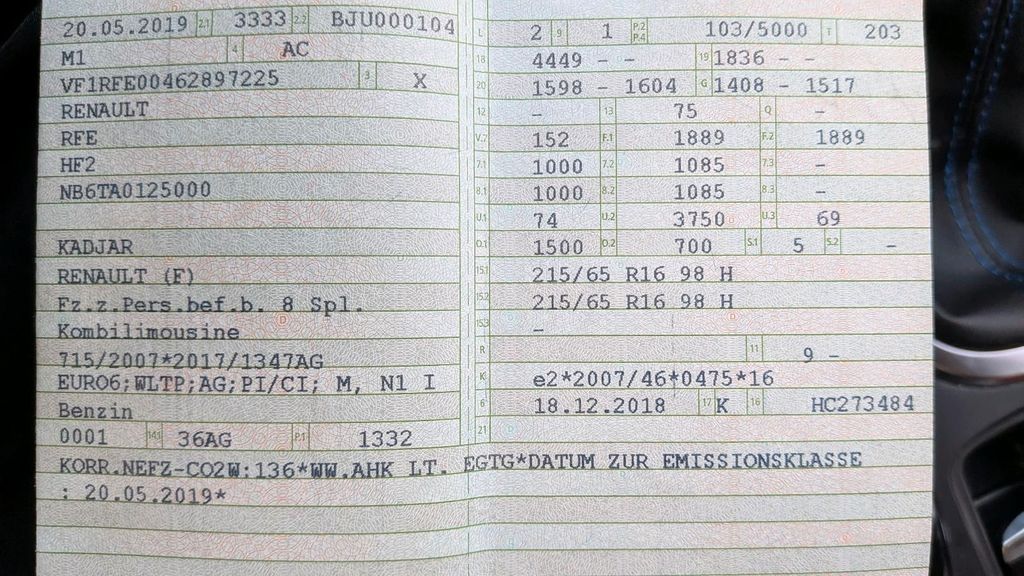 20.05.2019 2.1 3333 2.2 BJU000104
M1 4 AC
VF1RFE00462897225 3 X
RENAULT
RFE
HF2
NB6TA0125000
KADJAR
RENAULT (F)
Fz.z.Pers.bef.b. 8 Spl.
Kombilimousine
715/2007*2017/1347AG
EURO6;WLTP;AG;PI/CI; M, N1 I
Benzin
0001 14.1 36AG P.1 1332
L 2 9 1 P.2 P.4 103/5000 T 203
18 4449 - - 19 1836 - -
20 1598 - 1604 G 1408 - 1517
12 - 13 75 Q -
V.7 152 F.1 1889 F.2 1889
7.1 1000 7.2 1085 7.3 -
8.1 1000 8.2 1085 8.3 -
U.1 74 U.2 3750 U.3 69
O.1 1500 O.2 700 S.1 5 S.2 -
15.1 215/65 R16 98 H
15.2 215/65 R16 98 H
15.3 -
R 11 9 -
K e2*2007/46*0475*16
6 18.12.2018 17 K 16 HC273484
21
KORR.NEFZ-CO2W:136*WW.AHK LT. EGTG*DATUM ZUR EMISSIONSKLASSE
: 20.05.2019*